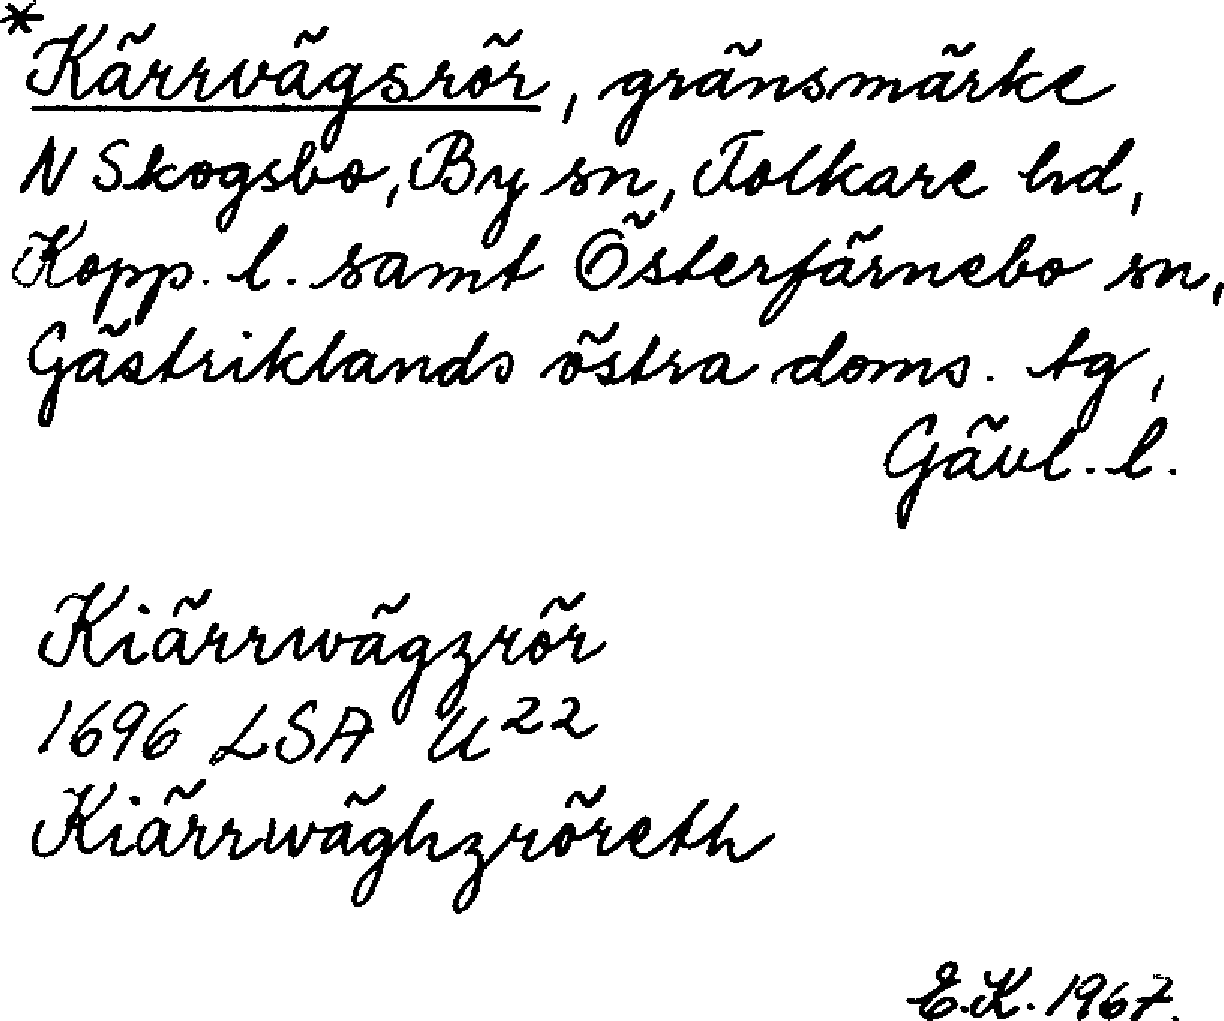 *Kärrvägsrör, gränsmärke
N Skogsbo, By sn, Folkare hd,
Kopp. l. samt Österfärnebo sn,
Gästriklands östra doms. tg,
Gävl. l.
Kiärrwägzrör
1696 LSA U 22
Kiärrwäghzröreth
E.K. 1967.